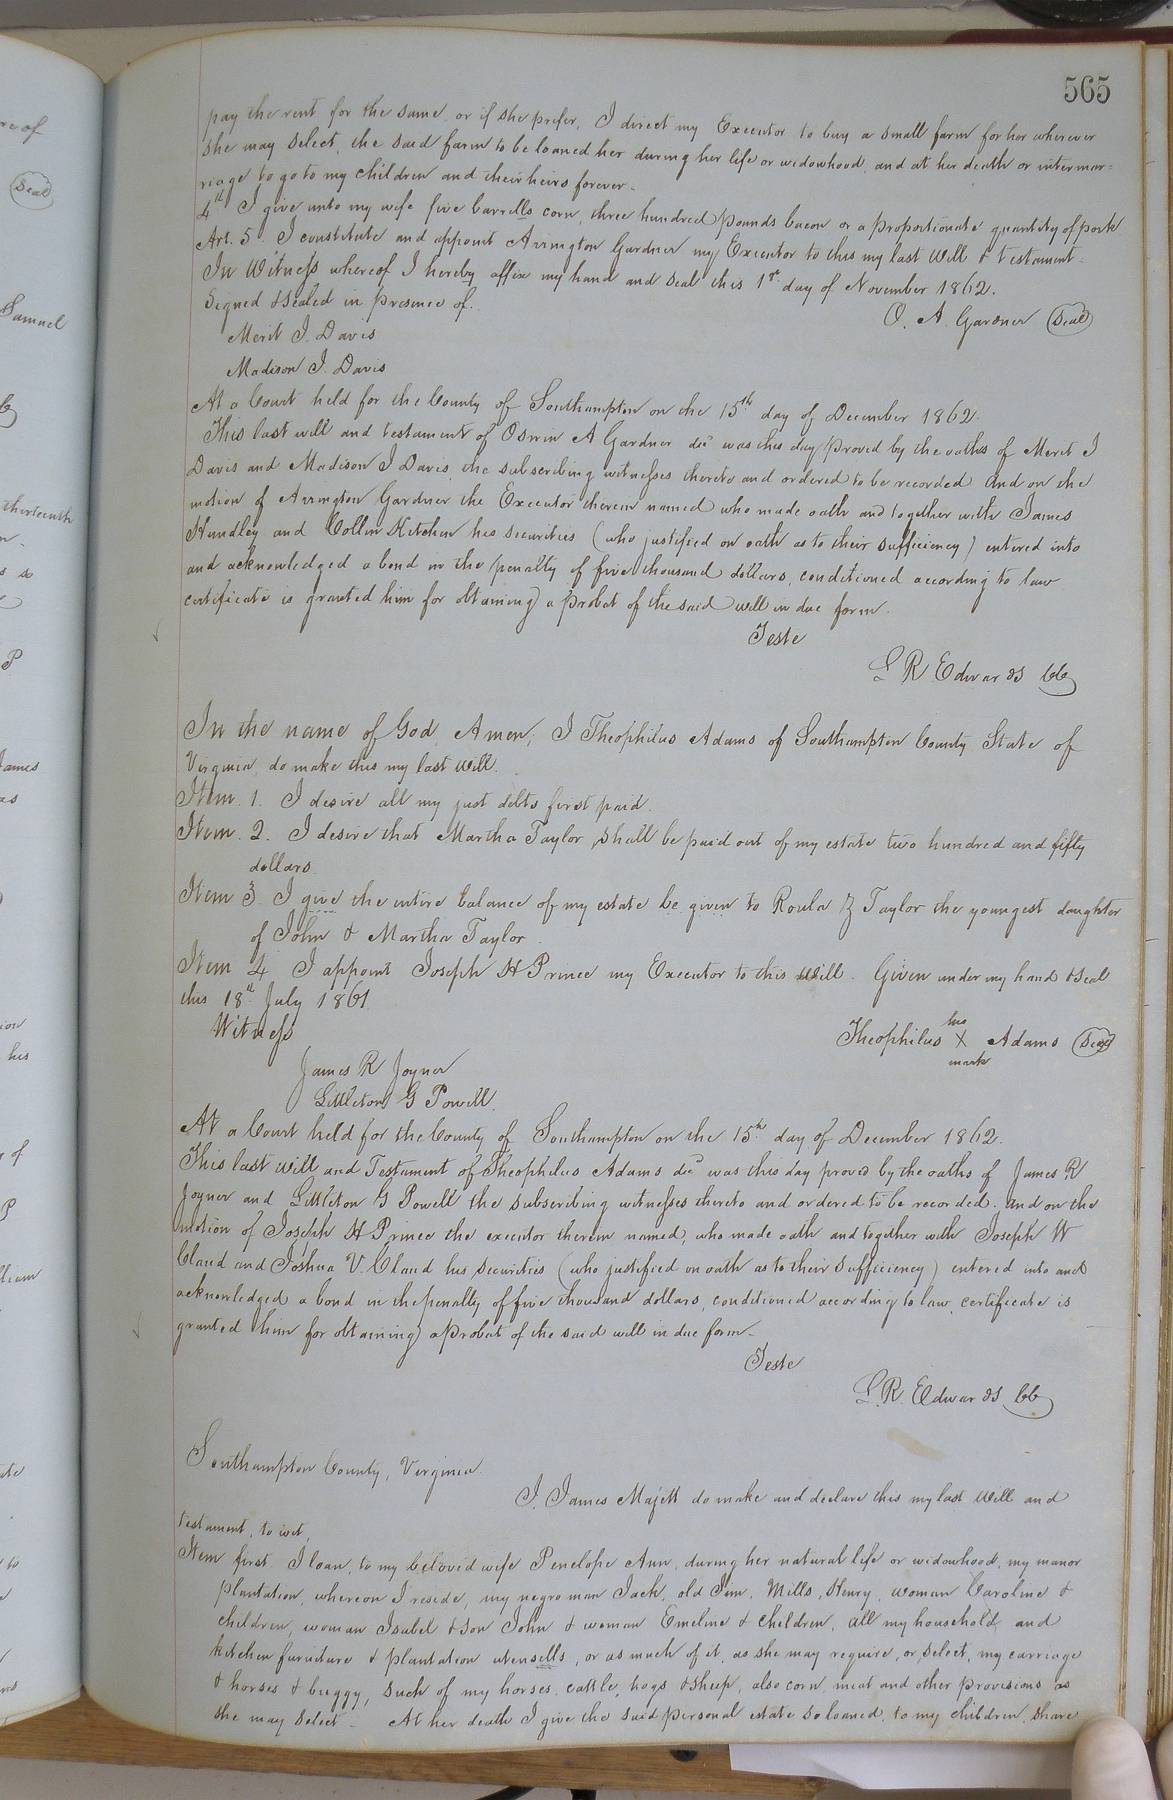 565
pay the rent for the same, or if she prefer, I direct my Executor to buy a small farm for her wherever
she may select, the said farm to be loaned her during her life or widowhood, and at her death or intermar=
riage to go to my children and their heirs forever.
4th I give unto my wife five barrells corn, three hundred pounds bacon or a proportionate quantity of pork
Art. 5. I constitute and appoint Arrington Gardner my Executor to this my last Will & testament.
In Witness whereof I hereby affix my hand and seal this 1st day of November 1862.
Signed & sealed in presence of.
O. A. Gardner (Seal)
Merit J. Davis
Madison J. Davis
At a Court held for the County of Southampton on the 15th day of December 1862.
This last will and testament of Osrin A Gardner decd was this day proved by the oaths of Merit J
Davis and Madison J Davis, the subscribing witnesses thereto and ordered to be recorded And on the
motion of Arrington Gardner the Executor therein named who made oath and together with James
Hundley and Collin Kitchen his securities (who justified on oath as to their sufficiency) entered into
and acknowledged a bond in the penalty of five thousand dollars, conditioned according to law
certificate is granted him for obtaining a probat of the said will in due form.
Teste
L R Edwards CC
In the name of God Amen; I Theophilus Adams of Southampton County State of
Virginia, do make this my last Will.
Item. 1. I desire all my just debts first paid.
Item. 2. I desire that Martha Taylor shall be paid out of my estate two hundred and fifty
dollars
Item 3. I give the entire balance of my estate be given to Roula Z Taylor the youngest daughter
of John & Martha Taylor.
Item 4 I appoint Joseph H Prince my Executor to this Will. Given under my hand & seal
this 18th July 1861
Witness
his
Theophilus X Adams (Seal)
mark
James R Joyner
Littleton G Powell.
At a Court held for the County of Southampton on the 15th day of December 1862.
This last Will and Testament of Theophilus Adams decd was this day proved by the oaths of James R
Joyner and Littleton G Powell the subscribing witnesses thereto and ordered to be recorded. And on the
motion of Joseph H Prince the executor therein named, who made oath and together with Joseph W
Claud and Joshua V. Claud his securities (who justified on oath as to their sufficiency) entered into and
acknowledged a bond in the penalty of five thousand dollars, conditioned according to law, certificate is
granted him for obtaining a probat of the said will in due form.
Teste
L. R. Edwards CC
Southampton County, Virginia.
I, James Majett do make and declare this my last Will and
testament, to wit,
Item first. I loan, to my beloved wife Penelope Ann, during her natural life or widowhood, my manor
plantation, whereon I reside, my negro man Jack, old Jim, Mills, Henry, woman Caroline &
children, woman Isabel & son John & woman Emeline & children, all my household and
kitchen furniture & plantation utensells, or as much of it, as she may require, or select, my carriage
& horses & buggy, such of my horses, cattle, hogs & sheep, also corn, meat and other provisions as
she may select. At her death I give the said personal estate so loaned, to my children, share